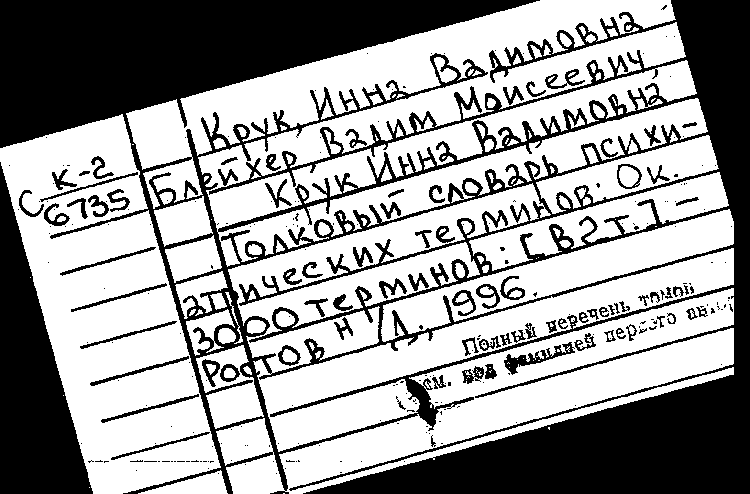 Крук, Инна Вадимовна
К-2
С 6735
Блейхер, Вадим Моисеевич,
Крук Инна Вадимовна
Толковый словарь психи-
атрических терминов: Ок.
3000 терминов: [В 2 т.] -
Ростов н/Д., 1996.
Полный перечень томов
см. под фамилией первого